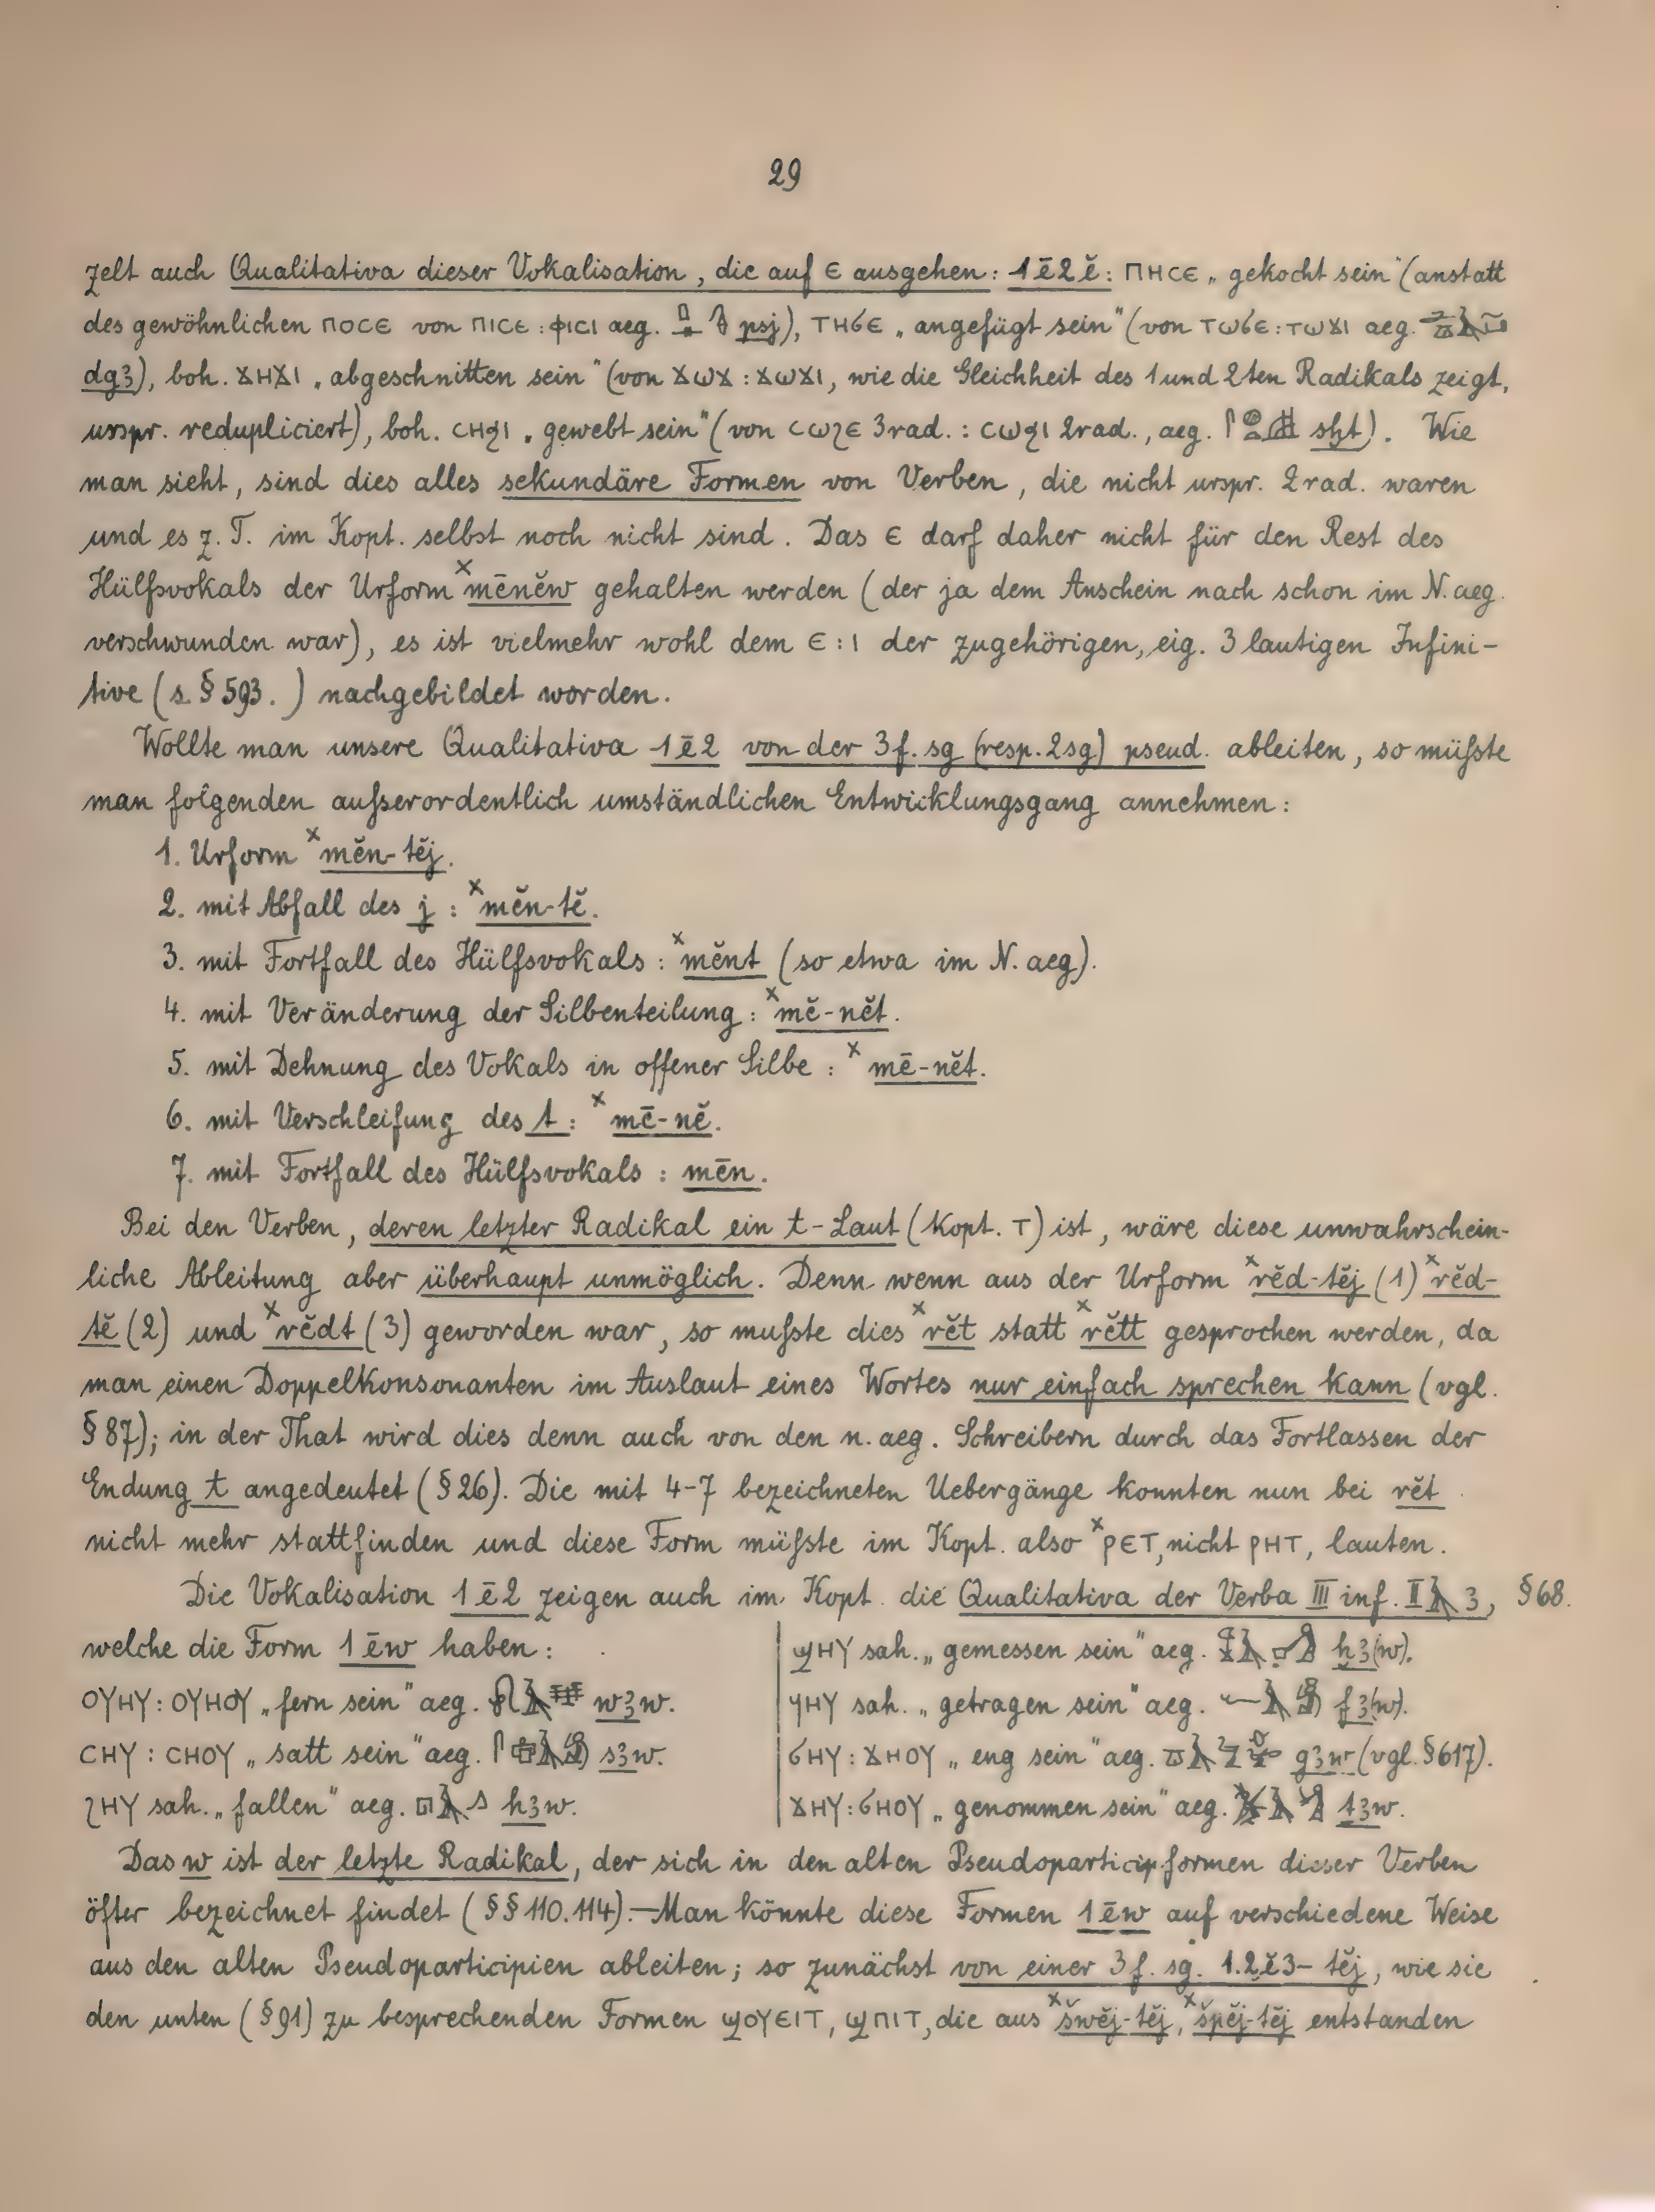 29
zelt auch Qualitativa dieser Vokalisation, die auf ⲉ ausgehen: 1 ē 2 ĕ: ⲡⲏⲥⲉ „gekocht sein“ (anstatt
des gewöhnlichen ⲡⲟⲥⲉ von ⲡⲓⲥⲉ : ⲫⲓⲥⲓ aeg. psj), ⲧⲏϭⲉ „angefügt sein“ (von ⲧⲱϭⲉ : ⲧⲱϫⲓ aeg.
dgꜣ), boh. ϫⲏϫⲓ „abgeschnitten sein“ (von ϫⲱϫ : ϫⲱϫⲓ, wie die Gleichheit des 1 und 2ten Radikals zeigt,
urspr. redupliciert), boh. ⲥⲏϧⲓ „gewebt sein“ (von ⲥⲱϩⲉ 3rad. : ⲥⲱϧⲓ 2rad., aeg. sḫt). Wie
man sieht, sind dies alles sekundäre Formen von Verben, die nicht urspr. 2rad. waren
und es z. T. im Kopt. selbst noch nicht sind. Das ⲉ darf daher nicht für den Rest des
Hülfsvokals der Urform ˣmēnĕw gehalten werden (der ja dem Anschein nach schon im N. aeg.
verschwunden war), es ist vielmehr wohl dem ⲉ : ⲓ der zugehörigen, eig. 3 lautigen Infini-
tive (s. § 593. ) nachgebildet worden.
Wollte man unsere Qualitativa 1 ē 2 von der 3 f. sg (resp. 2 sg) pseud. ableiten, so müßte
man folgenden außerordentlich umständlichen Entwicklungsgang annehmen:
1. Urform ˣmĕn-tĕj.
2. mit Abfall des j : ˣmĕn-tĕ.
3. mit Fortfall des Hülfsvokals : ˣmĕnt (so etwa im N. aeg).
4. mit Veränderung der Silbenteilung : ˣmĕ-nĕt.
5. mit Dehnung des Vokals in offener Silbe : ˣmē-nĕt.
6. mit Verschleifung des t : ˣmē-nĕ.
7. mit Fortfall des Hülfsvokals : mēn.
Bei den Verben, deren letzter Radikal ein t-Laut (kopt. ⲧ) ist, wäre diese unwahrschein-
liche Ableitung aber überhaupt unmöglich. Denn wenn aus der Urform ˣrĕd-tĕj (1) ˣrĕd-
tĕ (2) und ˣrĕdt (3) geworden war, so mußte dies ˣrĕt statt ˣrĕtt gesprochen werden, da
man einen Doppelkonsonanten im Auslaut eines Wortes nur einfach sprechen kann (vgl.
§ 87); in der That wird dies denn auch von den n. aeg. Schreibern durch das Fortlassen der
Endung t angedeutet (§ 26). Die mit 4-7 bezeichneten Uebergänge konnten nun bei rĕt
nicht mehr stattfinden und diese Form müßte im Kopt. also ˣⲣⲉⲧ, nicht ⲣⲏⲧ, lauten.
Die Vokalisation 1 ē 2 zeigen auch im Kopt. die Qualitativa der Verba III inf. II 𓄿 3, § 68.
welche die Form 1 ēw haben:
ⲟⲩⲏⲩ : ⲟⲩⲏⲟⲩ „fern sein“ aeg. wꜣw.
ⲥⲏⲩ : ⲥⲏⲟⲩ „satt sein“ aeg. sꜣw.
ϩⲏⲩ sah. „fallen“ aeg. hꜣw.
ϣⲏⲩ sah. „gemessen sein“ aeg. ḫꜣ(w).
ϥⲏⲩ sah. „getragen sein“ aeg. fꜣ(w).
ϭⲏⲩ : ϫⲏⲟⲩ „eng sein“ aeg. gꜣw (vgl. § 617).
ϫⲏⲩ : ϭⲏⲟⲩ „genommen sein“ aeg. ṯꜣw.
Das w ist der letzte Radikal, der sich in den alten Pseudoparticipformen dieser Verben
öfter bezeichnet findet (§§ 110. 114). — Man könnte diese Formen 1 ēw auf verschiedene Weise
aus den alten Pseudoparticipien ableiten; so zunächst von einer 3 f. sg. 1.2 ĕ 3-tĕj, wie sie
den unten (§ 91) zu besprechenden Formen ϣⲟⲩⲉⲓⲧ, ϣⲡⲓⲧ, die aus ˣšwĕj-tĕj, ˣšpĕj-tĕj entstanden